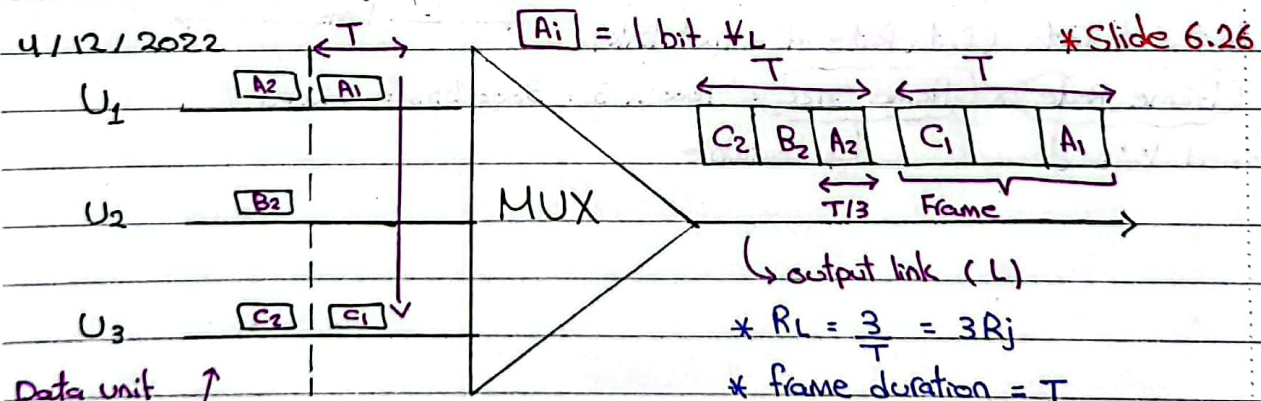 4/12/2022
T
[Ai] = 1 bit ∀L
*Slide 6.26
U1
A2
A1
T
T
C2
B2
A2
C1
A1
T/3
Frame
U2
B2
MUX
↳ output link (L)
U3
C2
C1
* RL = 3/T = 3Rj
Data unit ↑
* frame duration = T